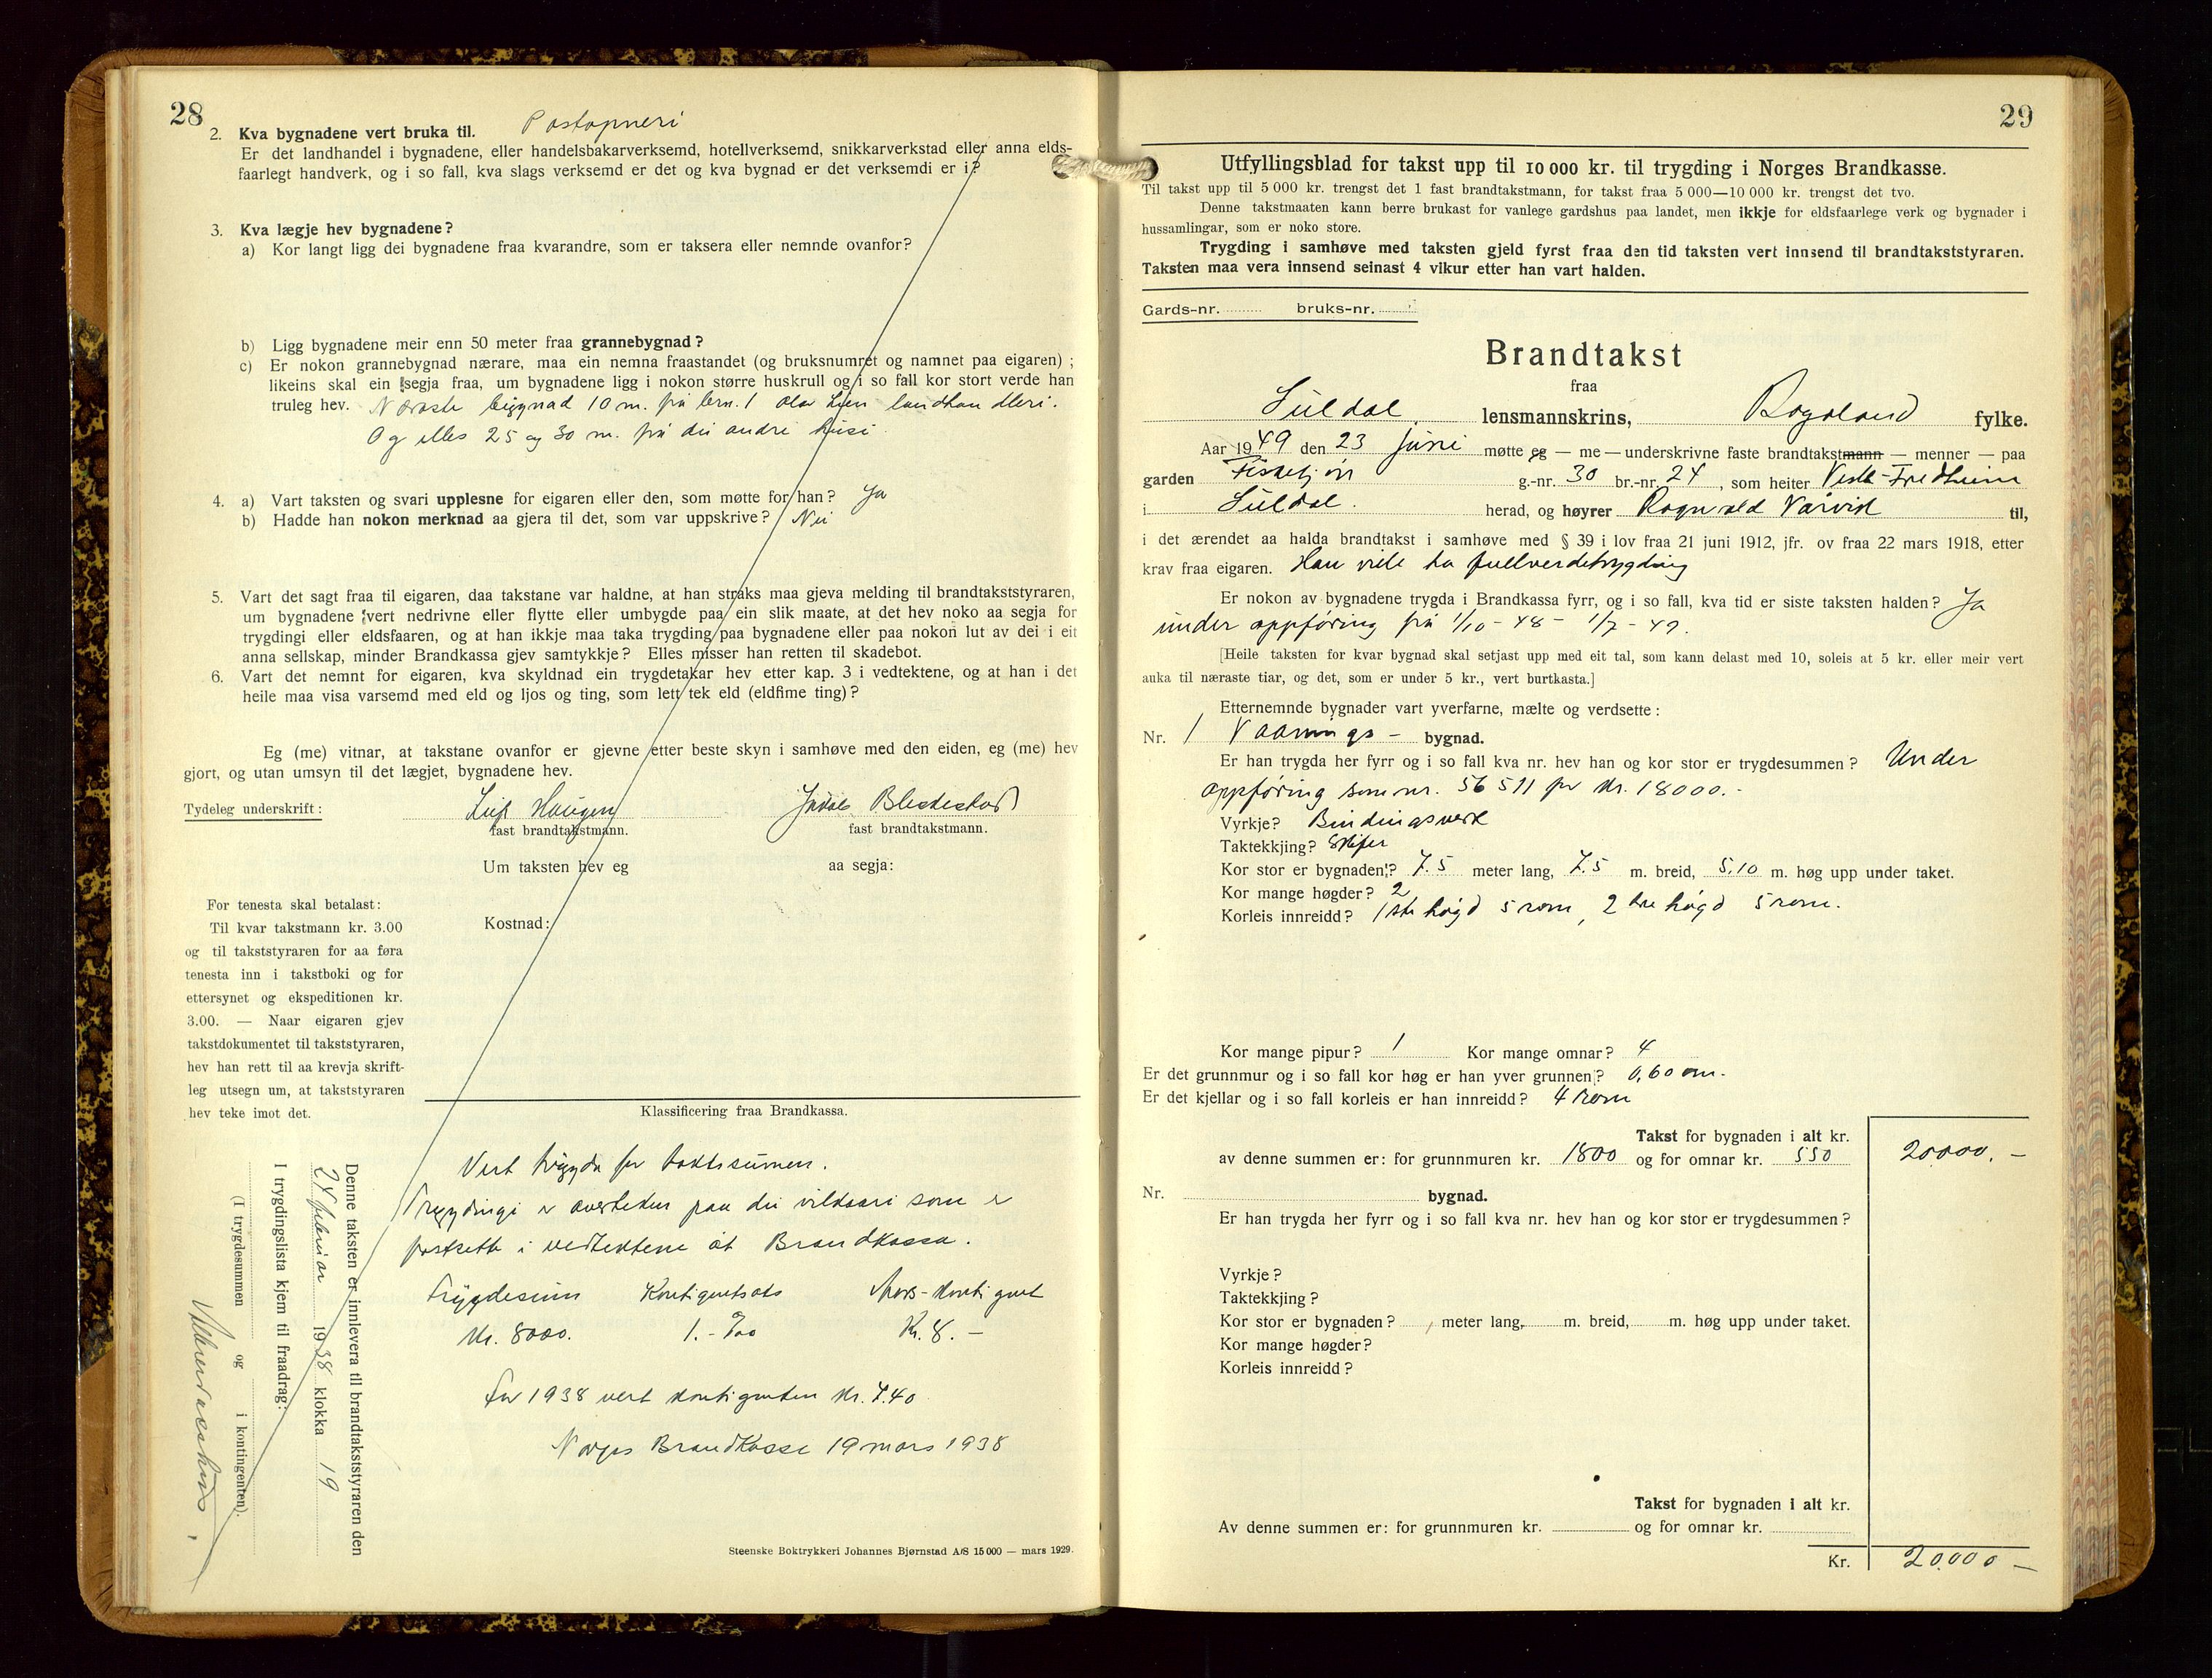 28
2. Kva bygnadene vert bruka til. Postopneri
Er det landhandel i bygnadene, eller handelsbakarverksemd, hotellverksemd, snikkarverkstad eller anna elds-
faarlegt handverk, og i so fall, kva slags verksemd er det og kva bygnad er det verksemdi er i?
3. Kva lægje hev bygnadene?
a) Kor langt ligg dei bygnadene fraa kvarandre, som er taksera eller nemnde ovanfor?
b) Ligg bygnadene meir enn 50 meter fraa grannebygnad?
c) Er nokon grannebygnad nærare, maa ein nemna fraastandet (og bruksnumret og namnet paa eigaren);
likeins skal ein segja fraa, um bygnadene ligg i nokon større huskrull og i so fall kor stort verde han
truleg hev. Næraste bygnad 10 m. frå brn. 1 Ola Lien landhandleri.
Og elles 25 og 30 m. frå dei andre husi
4. a) Vart taksten og svari upplesne for eigaren eller den, som møtte for han? Ja
b) Hadde han nokon merknad aa gjera til det, som var uppskrive? Nei
5. Vart det sagt fraa til eigaren, daa takstane var haldne, at han straks maa gjeva melding til brandtakststyraren,
um bygnadene vert nedrivne eller flytte eller umbygde paa ein slik maate, at det hev noko aa segja for
trygdingi eller eldsfaaren, og at han ikkje maa taka trygding paa bygnadene eller paa nokon lut av dei i eit
anna sellskap, minder Brandkassa gjev samtykkje? Elles misser han retten til skadebot.
6. Vart det nemnt for eigaren, kva skyldnad ein trygdetakar hev etter kap. 3 i vedtektene, og at han i det
heile maa visa varsemd med eld og ljos og ting, som lett tek eld (eldfime ting)?
Eg (me) vitnar, at takstane ovanfor er gjevne etter beste skyn i samhøve med den eiden, eg (me) hev
gjort, og utan umsyn til det lægjet, bygnadene hev.
Tydeleg underskrift: Leif Haugen
fast brandtakstmann. fast brandtakstmann.
Um taksten hev eg aa segja:
For tenesta skal betalast:
Til kvar takstmann kr. 3.00
og til takststyraren for aa føra
tenesta inn i takstboki og for
ettersynet og ekspeditionen kr.
3.00. — Naar eigaren gjev
takstdokumentet til takststyraren,
hev han rett til aa krevja skrift-
leg utsegn um, at takststyraren
hev teke imot det.
Kostnad:
Klassificering fraa Brandkassa.
Vert trygda for takstsumen.
Trygdingi er avorteken paa dei vilkaari som er
fastsette i vedtektene åt Brandkassa.
Trygdesum Kontigentsats Aars-kontigent
Kr. 8000. 1.- ‰ Kr. 8. –
For 1938 vert kontigenten Kr. 7.40
Norges Brandkasse 19 mars 1938
Denne taksten er innlevera til brandtakststyraren den
24 februar 1938 klokka 19
I trygdingslista kjem til fraadrag:
(I trygdesummen og i kontingenten).
Steenske Boktrykkeri Johannes Bjørnstad A/S 15 000 — mars 1929.
29
Utfyllingsblad for takst upp til 10 000 kr. til trygding i Norges Brandkasse.
Til takst upp til 5 000 kr. trengst det 1 fast brandtakstmann, for takst fraa 5 000—10 000 kr. trengst det tvo.
Denne takstmaaten kann berre brukast for vanlege gardshus paa landet, men ikkje for eldsfaarlege verk og bygnader i
hussamlingar, som er noko store.
Trygding i samhøve med taksten gjeld fyrst fraa den tid taksten vert innsend til brandtakststyraren.
Taksten maa vera innsend seinast 4 vikur etter han vart halden.
Gards-nr. bruks-nr.
Brandtakst
fraa
Suldal lensmannskrins, Rogaland fylke.
Aar 1949 den 23 juni møtte eg — me — underskrivne faste brandtakstmann — menner — paa
garden Fisketjón g.-nr. 30 br.-nr. 24, som heiter Vesle-Fredheim
i Suldal. herad, og høyrer Ragnvald Vårvik til,
i det ærendet aa halda brandtakst i samhøve med § 39 i lov fraa 21 juni 1912, jfr. ov fraa 22 mars 1918, etter
krav fraa eigaren. Han vile ha fullverdetrygding
Er nokon av bygnadene trygda i Brandkassa fyrr, og i so fall, kva tid er siste taksten halden? Ja
under oppføring frå 1/10 - 48 - 1/7 - 49.
[Heile taksten for kvar bygnad skal setjast upp med eit tal, som kann delast med 10, soleis at 5 kr. eller meir vert
auka til næraste tiar, og det, som er under 5 kr., vert burtkasta.]
Etternemnde bygnader vart yverfarne, mælte og verdsette:
Nr. 1 Vaanings- bygnad.
Er han trygda her fyrr og i so fall kva nr. hev han og kor stor er trygdesummen? Under
oppføring som nr. 56 511 for kr. 18000.-
Vyrkje? Bindingsverk
Taktekkjing? Skifer
Kor stor er bygnaden? 7.5 meter lang, 7.5 m. breid, 5.10 m. høg upp under taket.
Kor mange høgder? 2
Korleis innreidd? 1ste høgd 5 rom, 2dre høgd 5 rom.
Kor mange pipur? 1 Kor mange omnar? 4
Er det grunnmur og i so fall kor høg er han yver grunnen? 0,60 m.
Er det kjellar og i so fall korleis er han innreidd? 4 rom
Takst for bygnaden i alt kr.
av denne summen er: for grunnmuren kr. 1800 og for omnar kr. 550 20000. –
Nr. bygnad.
Er han trygda her fyrr og i so fall kva nr. hev han og kor stor er trygdesummen?
Vyrkje?
Taktekkjing?
Kor stor er bygnaden? meter lang, m. breid, m. høg upp under taket.
Kor mange høgder?
Korleis innreidd?
Takst for bygnaden i alt kr.
Av denne summen er: for grunnmuren kr. og for omnar kr.
Kr. 20000 –